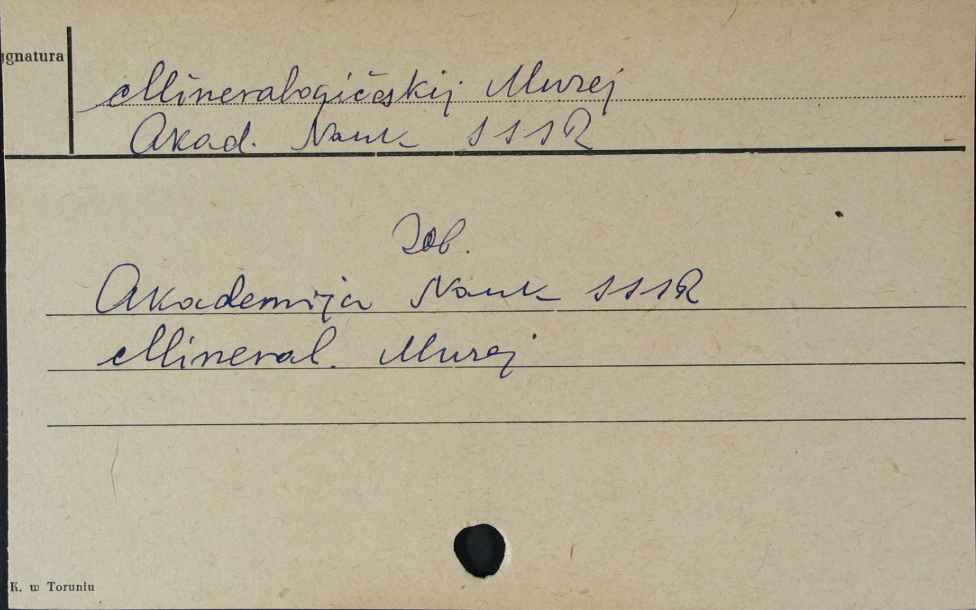 ygnatura
Mineralogičeskij Muzej
Akad. Nauk SSSR
Zob.
Akademija Nauk SSSR
Mineral. Muzej
K. w Toruniu